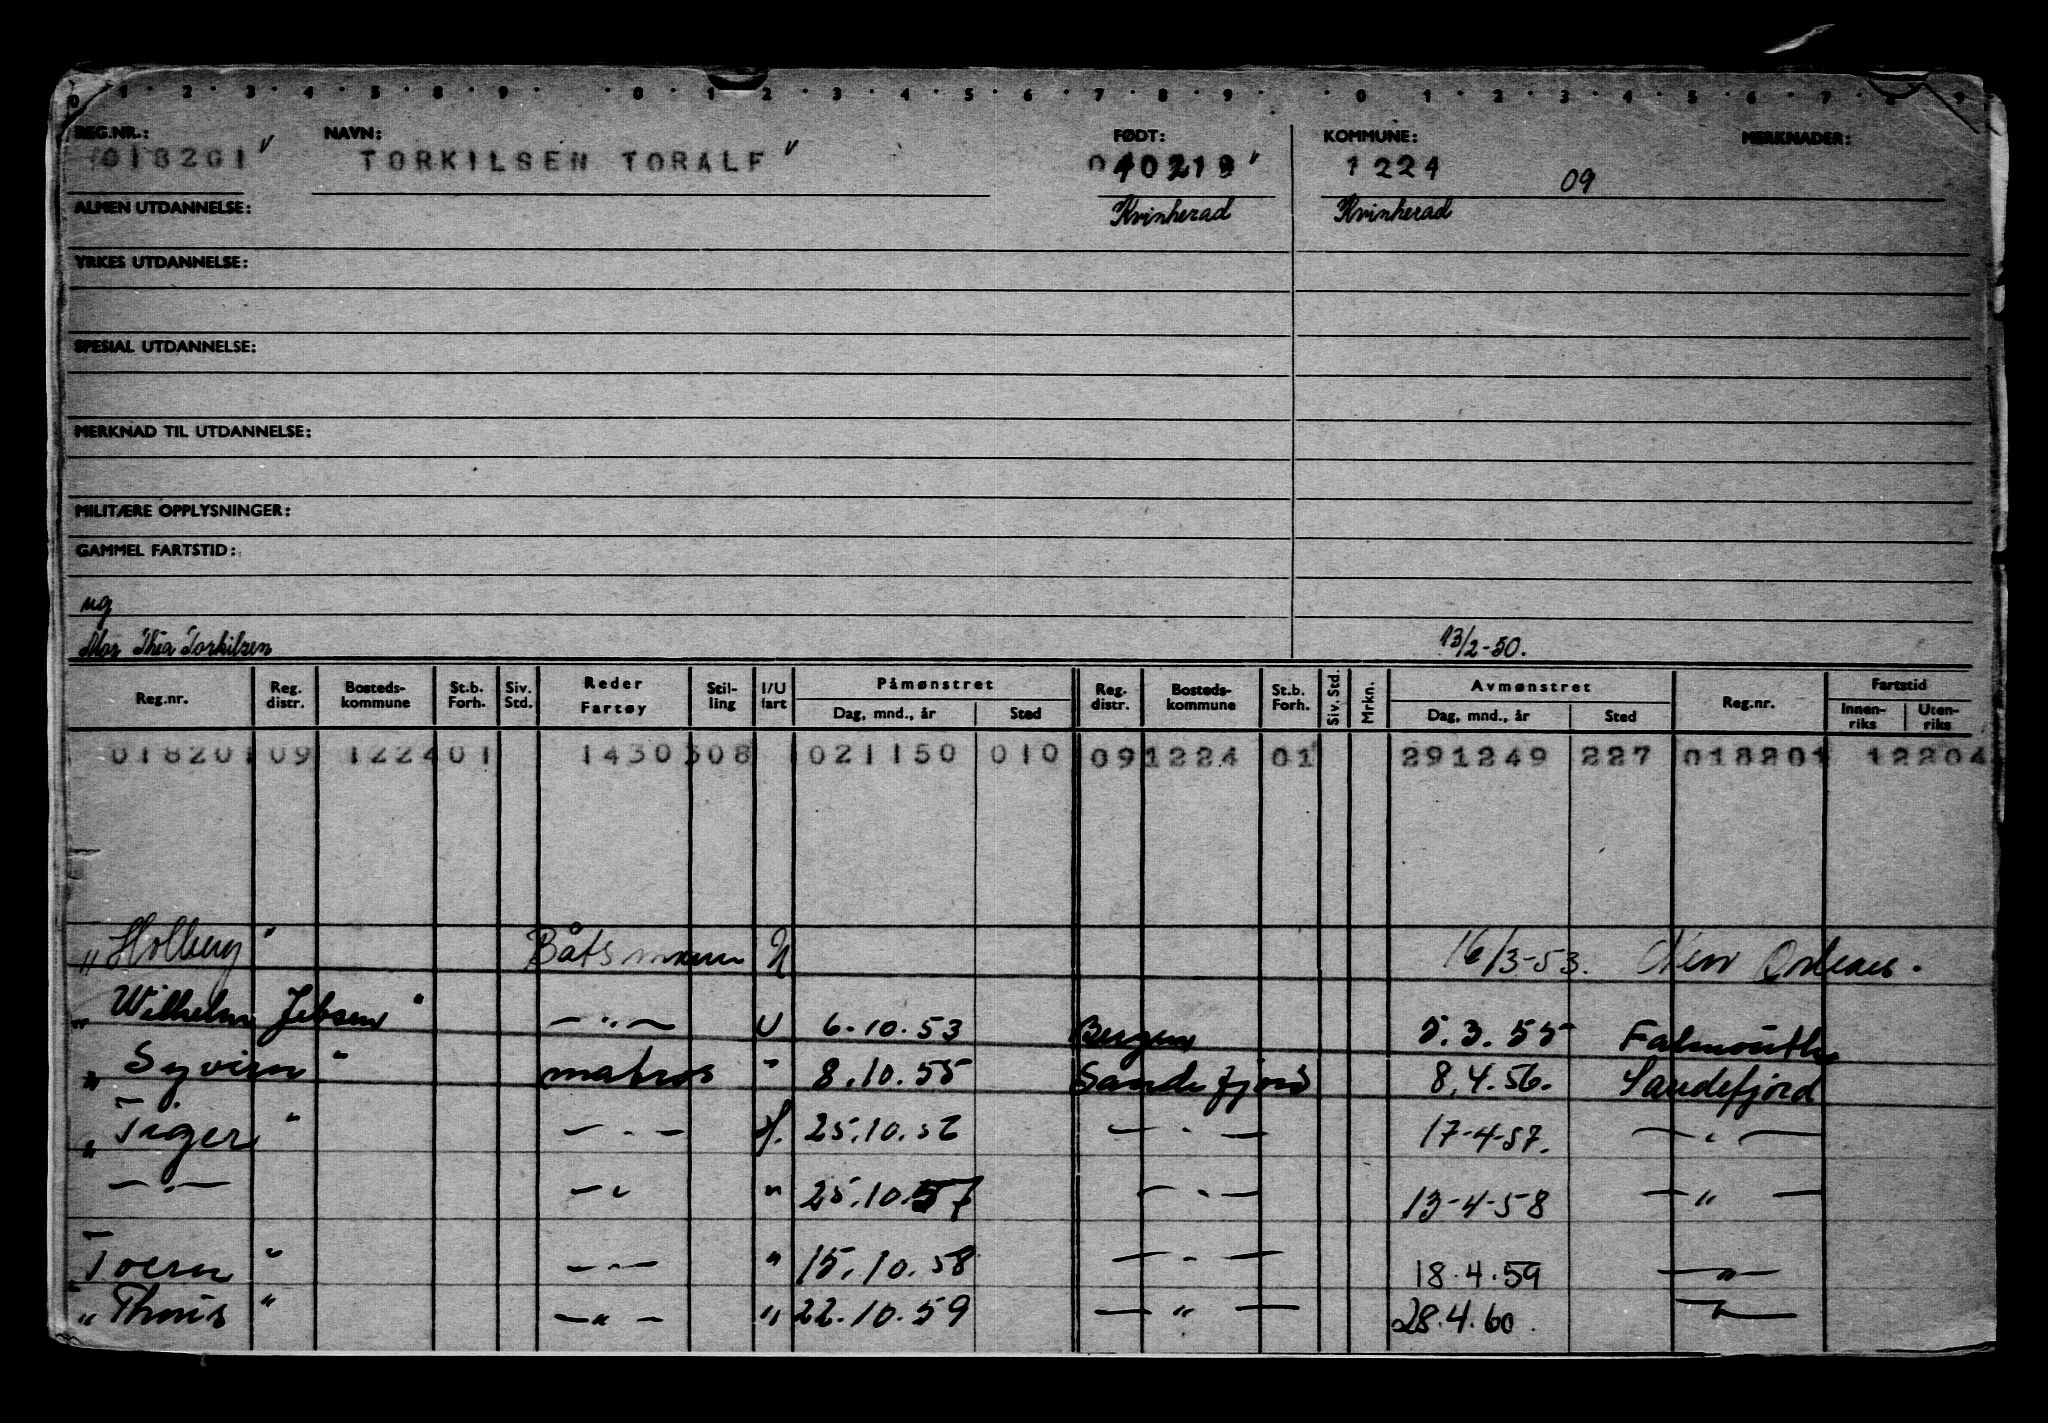 0 1 2 3 4 5 6 7 8 9 0 1 2 3 4 5 6 7 8 9 0 1 2 3 4 5 6 7 8 9
REG.NR.: NAVN: FØDT: KOMMUNE: MERKNADER:
018201 TORKILSEN TORALF 040219 1224 09
ALMEN UTDANNELSE: Kvinherad Kvinherad
YRKES UTDANNELSE:
SPESIAL UTDANNELSE:
MERKNAD TIL UTDANNELSE:
MILITÆRE OPPLYSNINGER:
GAMMEL FARTSTID:
ug
Mor Thea Torkilsen 13/2-50.
Reg.nr. Reg. distr. Bosteds-kommune St.b. Forh. Siv. Std. Reder Fartøy Stil-ling I/U fart Påmønstret Dag, mnd., år Sted Reg. distr. Bosteds-kommune St.b. Forh. Siv. Std. Mrkn. Avmønstret Dag, mnd., år Sted Reg.nr. Fartstid Innen-riks Uten-riks
018201 09 1224 01 1430 308 021150 010 09 1224 01 291249 227 018201 12204
„Holberg" Båtsmann U 16/3-53. New Orleans.
„Wilhelm Jebsen" — „ — U 6.10.53 Bergen 5.3.55 Falmouth
„Syvern" matros " 8.10.55 Sandefjord 8.4.56. Sandefjord
„Tiger" — „ — 25.10.56 — „ — 17-4-57. — „ —
— „ — — „ " 25.10.57 — „ — 13-4-58 — „ —
Toern" — „ — " 15.10.58 — „ — 18.4.59 — „ —
„Thoris" — „ — " 22.10.59 — „ — 28.4.60. — „ —